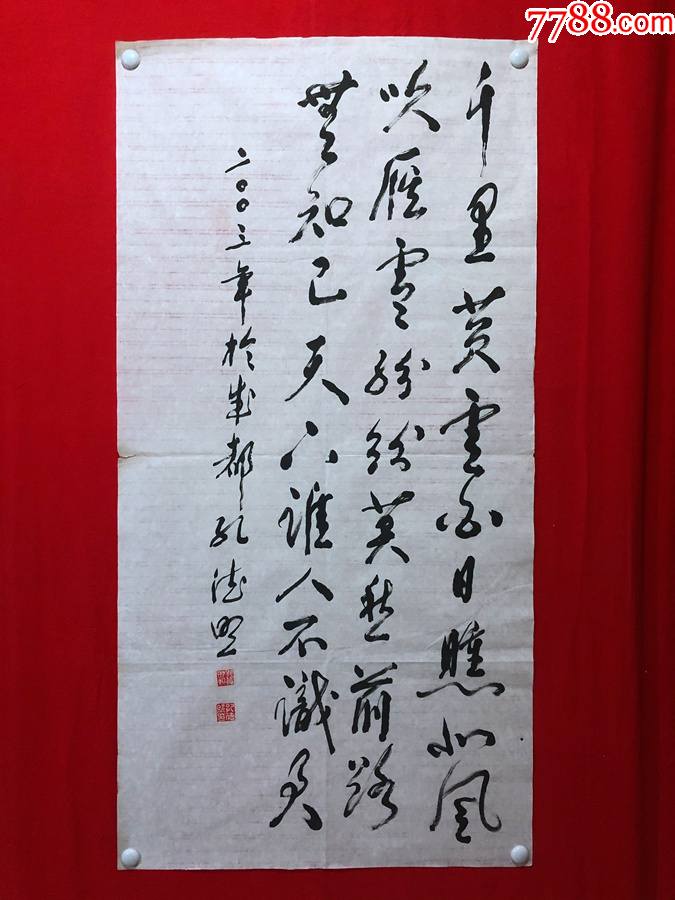 7788.com
千里黄雲白日曛北風
吹雁雪紛紛莫愁前路
無知己天下誰人不識君
二〇〇三年於成都孔德